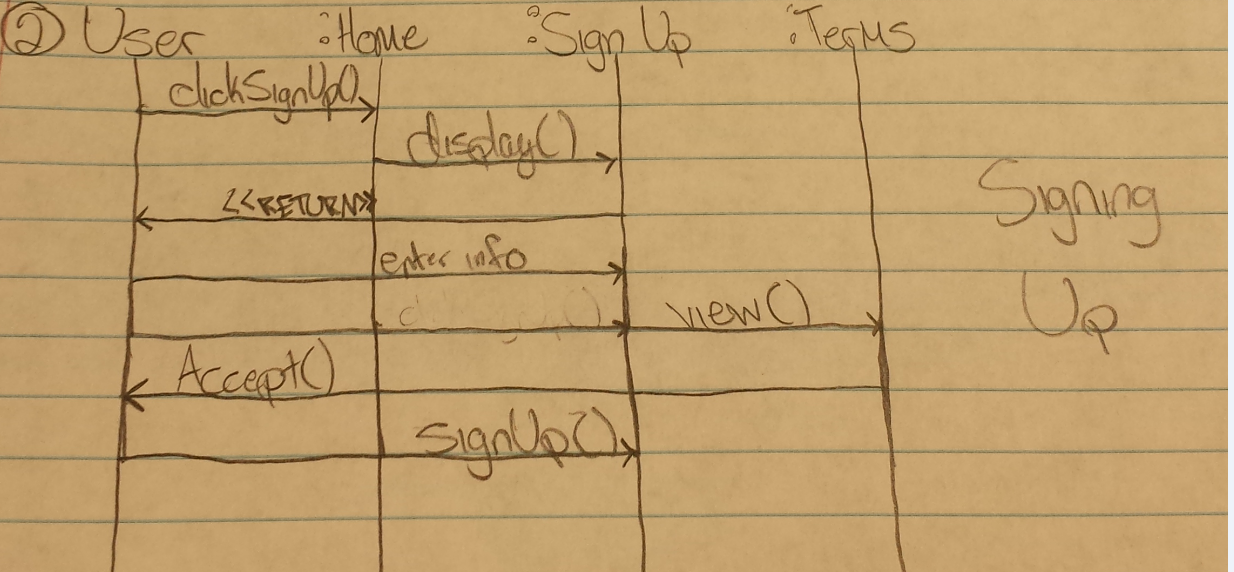 ② User :Home :Sign Up :Terms
clickSignUp()
display()
<<RETURN>>
enter info
view()
Accept()
signUp()
Signing
Up